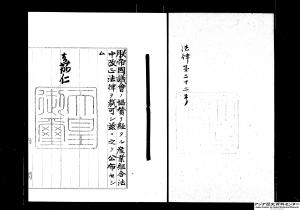 法律第二十二号
朕帝國議會ノ協賛ヲ經タル産業組合法
中改正法律ヲ裁可シ茲ニ之ヲ公布セシ
ム
嘉仁
天皇御璽
アジア歴史資料センター